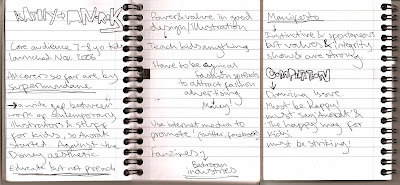 ANORAK
Core audience 7-8 yo kids
launched Nov 2006
All covers so far are by
supermundane
→ wide gap between
work of contemporary
illustrators & stuff
for kids, so Anorak
started. Against the
Disney aesthetic
Educate but not preach
Power & value in good
design/illustration
Teach kids anything
Have to be cynical
fashion spreads
to attract fashion
advertising
Money!
Use internet media to
promote! (twitter, facebook)
Fanzines
Bedroom
industries
Manifesto
Instinctive & spontaneous
but values & integrity
should are strong
COMPETITION
Drawing love
Must be happy!
must say 'Anorak' &
'The happy mag for
Kids'
must be striking!